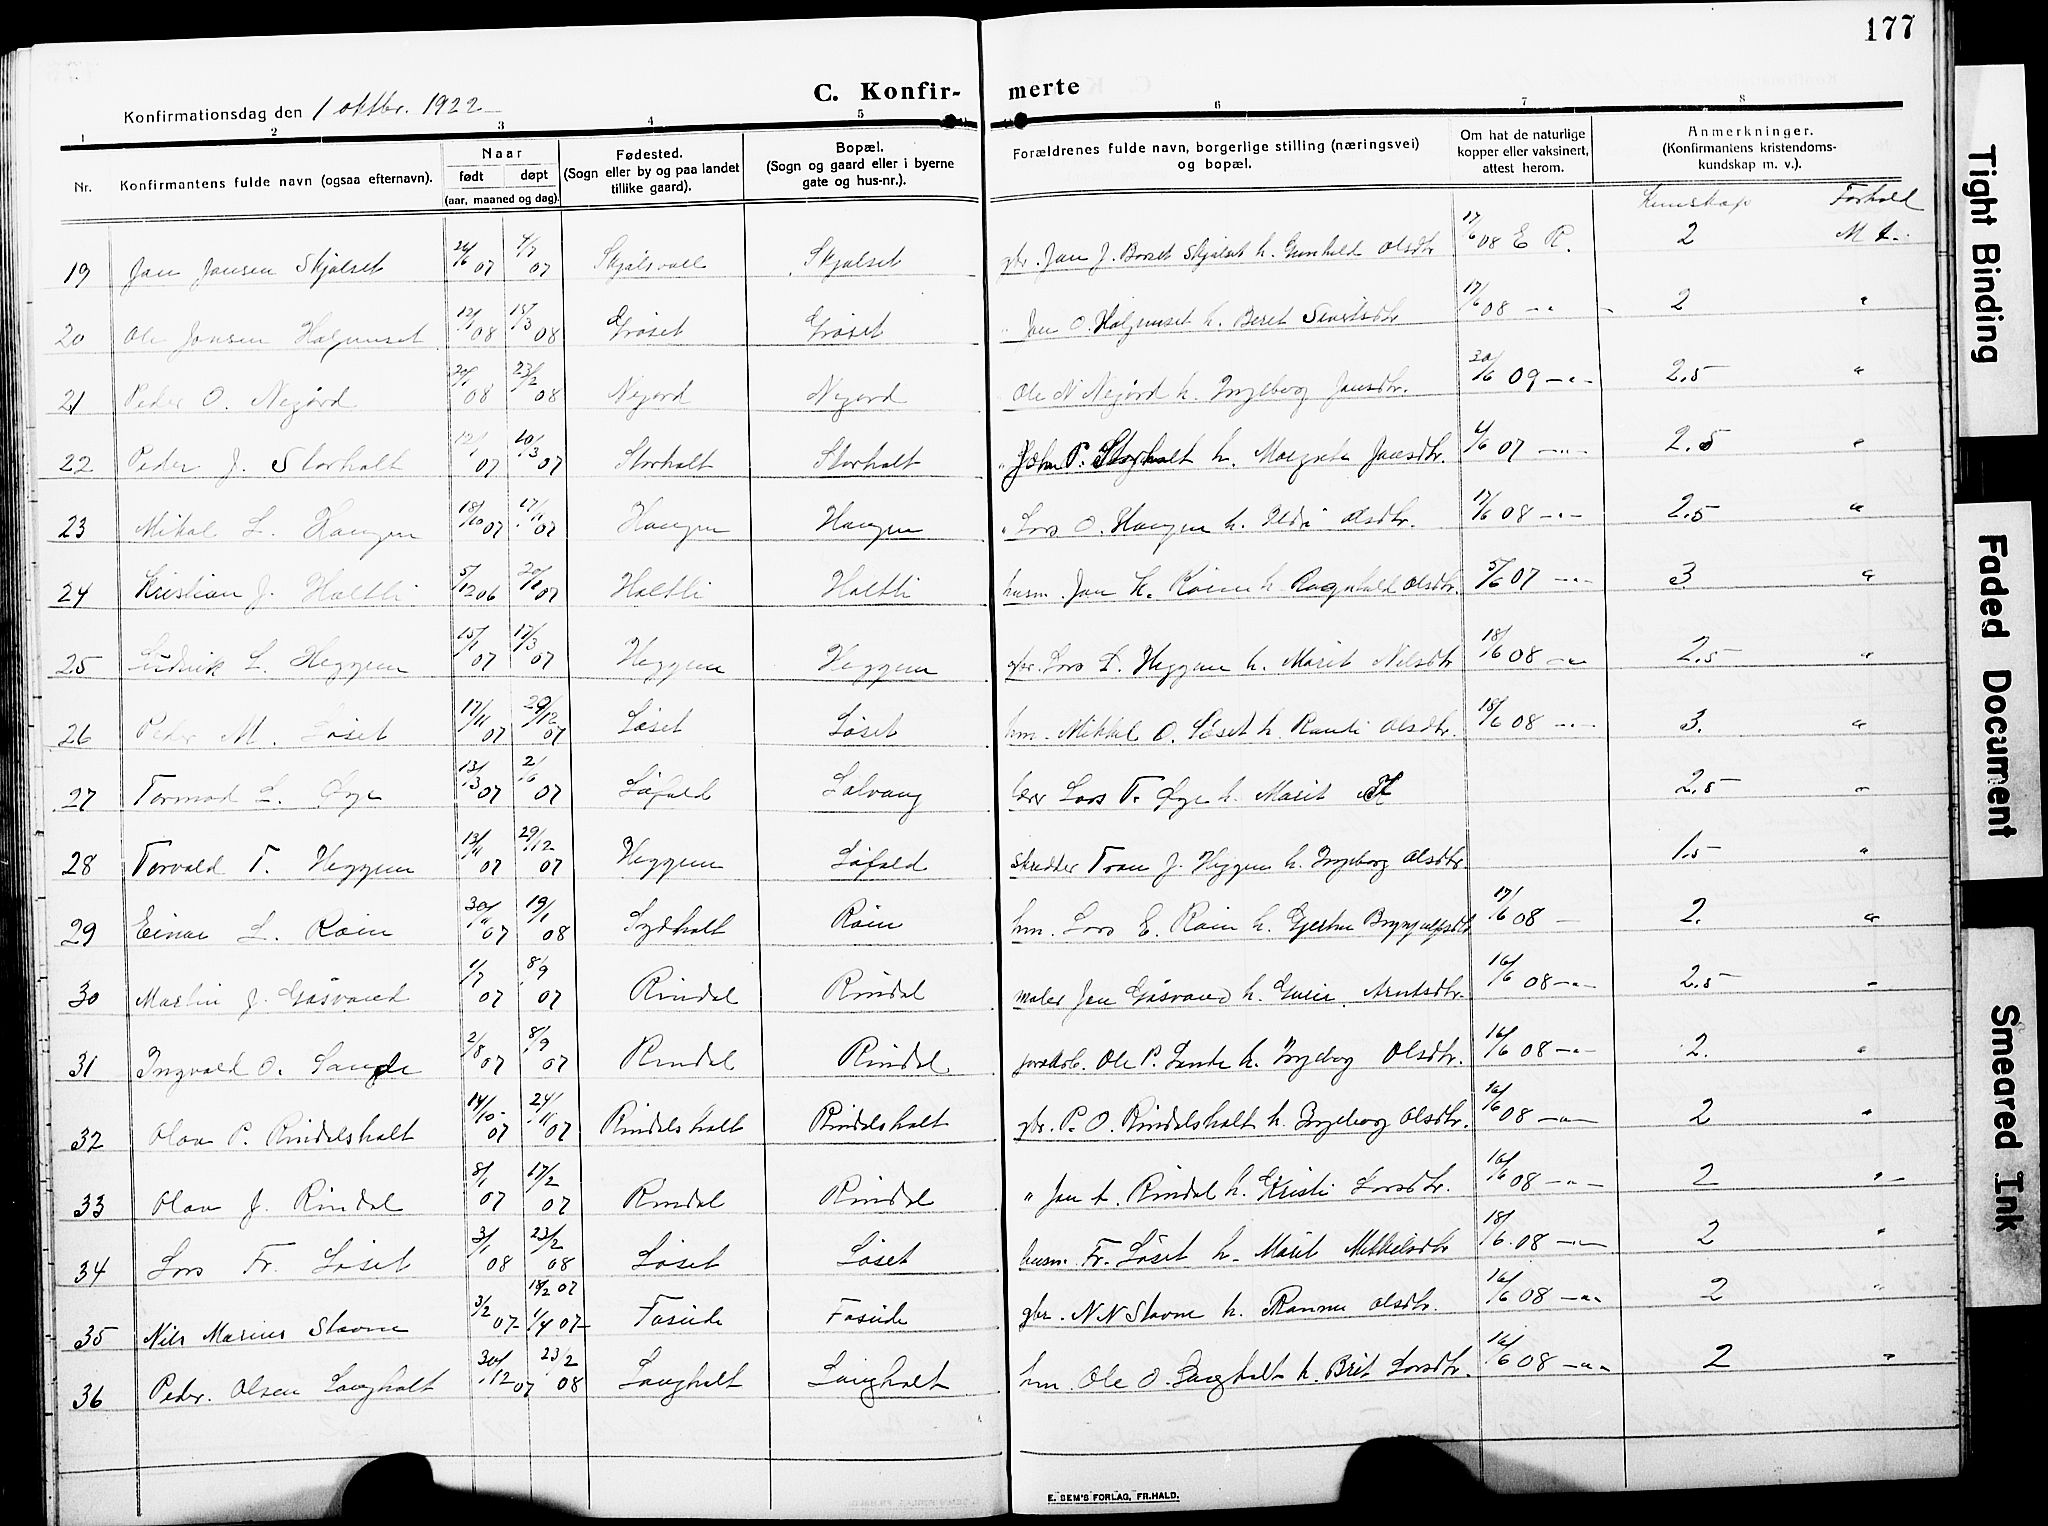 177
C. Konfir- merte
Konfirmationsdag den 1 oktbr. 1922
1 2 3 4 5 6 7 8
Nr. Konfirmantens fulde navn (ogsaa efternavn). Naar født døpt (aar, maaned og dag). Fødested. (Sogn eller by og paa landet tillike gaard). Bopæl. (Sogn og gaard eller i byerne gate og hus-nr.). Forældrenes fulde navn, borgerlige stilling (næringsvei) og bopæl. Om hat de naturlige kopper eller vaksinert, attest herom. Anmerkninger. (Konfirmantens kristendoms-kundskap m. v.).
Kunskap Forhold
19 Jon Jonsen Skjølset 26/6 07 4/7 07 Skjølsvoll Skjølset gbr. Jon J. Børset Skjølset h. Gunhild Olsdtr 17/6 08 E R. 2 M t.
20 Ole Jonsen Halgunset 12/1 08 15/3 08 Grøset Grøset " Jon O. Halgunset h. Beret Sivertsdtr 17/6 08 - " - 2 "
21 Peder O. Negård 20/1 08 23/2 08 Negard Negard Ole N Negård h. Ingeborg Jonsdtr. 30/6 09 - " - 2.5 "
22 Peder J. Storholt 12/1 07 10/3 07 Storholt Storholt " John P. Storholt h. Margrete Jonsdtr. 4/6 07 - " - 2.5 "
23 Mikal L. Haugen 18/10 07 17/11 07 Haugen Haugen " Lars O. Haugen h. Olsdtr. 17/6 08 - " - 2.5 "
24 Kristian J. Holtli 5/12 06 20/1 07 Holtli Holtli husm. Jon K. Røen h. Ragnhild Olsdtr. 5/6 07 - " - 3 "
25 L. Heggem 15/1 07 17/3 07 Heggem Heggem gbr. Lars L. Heggem h. Marit Nilsdtr 18/6 08 - " 2.5 "
26 Peder M. Løset 17/11 07 29/12 07 Løset Løset hm. Mikkel O. Løset h. Randi Olsdtr. 18/6 08 - " - 3. "
27 Tormod L. Øye 13/3 07 2/6 07 Løfald Solvang Lars T. Øye h. Marit 2.5 "
28 Torvald T. Heggem 13/11 07 29/12 07 Heggem Løfald skrædder Tron J. Heggem h. Ingeborg Olsdtr 1.5 "
29 Einar L. Røen 30/11 07 19/1 08 Røen hm. Lars E. Røen h. Gjertru Brynjulfsdtr 17/6 08 - 2. "
30 Martin J. Gåsvand 1/7 07 8/9 07 Rindal Rindal maler Jon Gåsvand h. Guri Arntsdtr. 16/6 08 - " - 2.5 "
31 Ingvald O. Lande 2/8 07 8/9 07 Rindal Rindal Ole P. Lande h. Ingeborg Olsdtr. 16/6 08 - " - 2. "
32 Olav P. Rindalsholt 14/10 07 24/11 07 Rindalsholt Rindalsholt gbr. P. O. Rindalsholt h. Ingeborg Olsdtr. 16/6 08 - " - 2 "
33 Olav J. Rindal 8/1 07 17/2 07 Rindal Rindal " Jon A. Rindal h. Kristi Larsdtr. 16/6 08 - " - 2 "
34 Lars Fr. Løset 3/1 08 23/2 08 Løset Løset husm. Fr. Løset h. Marit Mikkelsdtr 18/6 08 - " - 2 "
35 Nils Marius Stavne 3/2 07 18/2 07 1/4 07 Foseide Foseide gbr. N N Stavne h. Olsdtr. 16/6 08 - " 2 "
36 Peder Olsen Langholt 30/12 07 23/2 08 Langholt Langholt hm. Ole O. Langholt h. Brit Larsdtr. 16/6 08 - " - 2 "
E. SEM'S FORLAG, FR.HALD.
Tight Binding
Faded Document
Smeared Ink